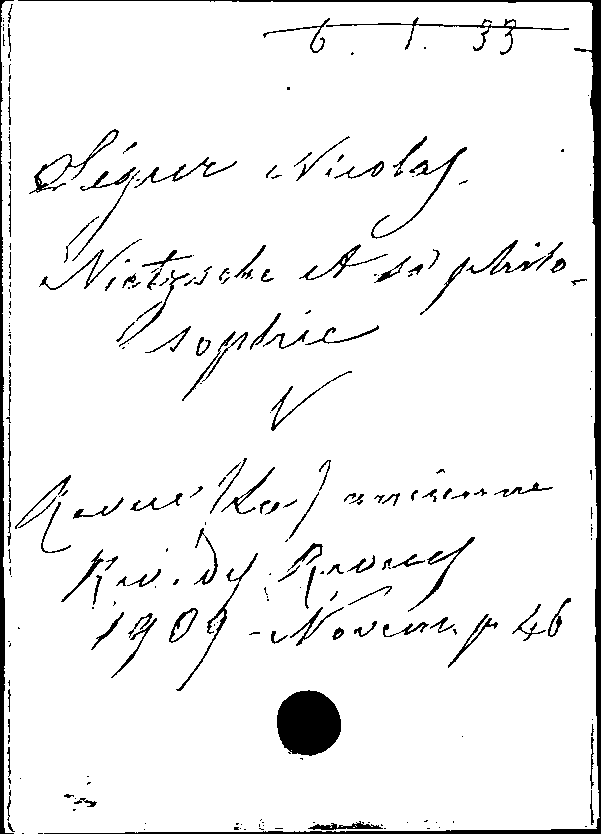 6. 1. 33
Ségur Nicolas.
Nietzsche et sa philo-
sophie
V
Revue (La) ancienne
Rev. des Revues
1909 - Novem. p 46